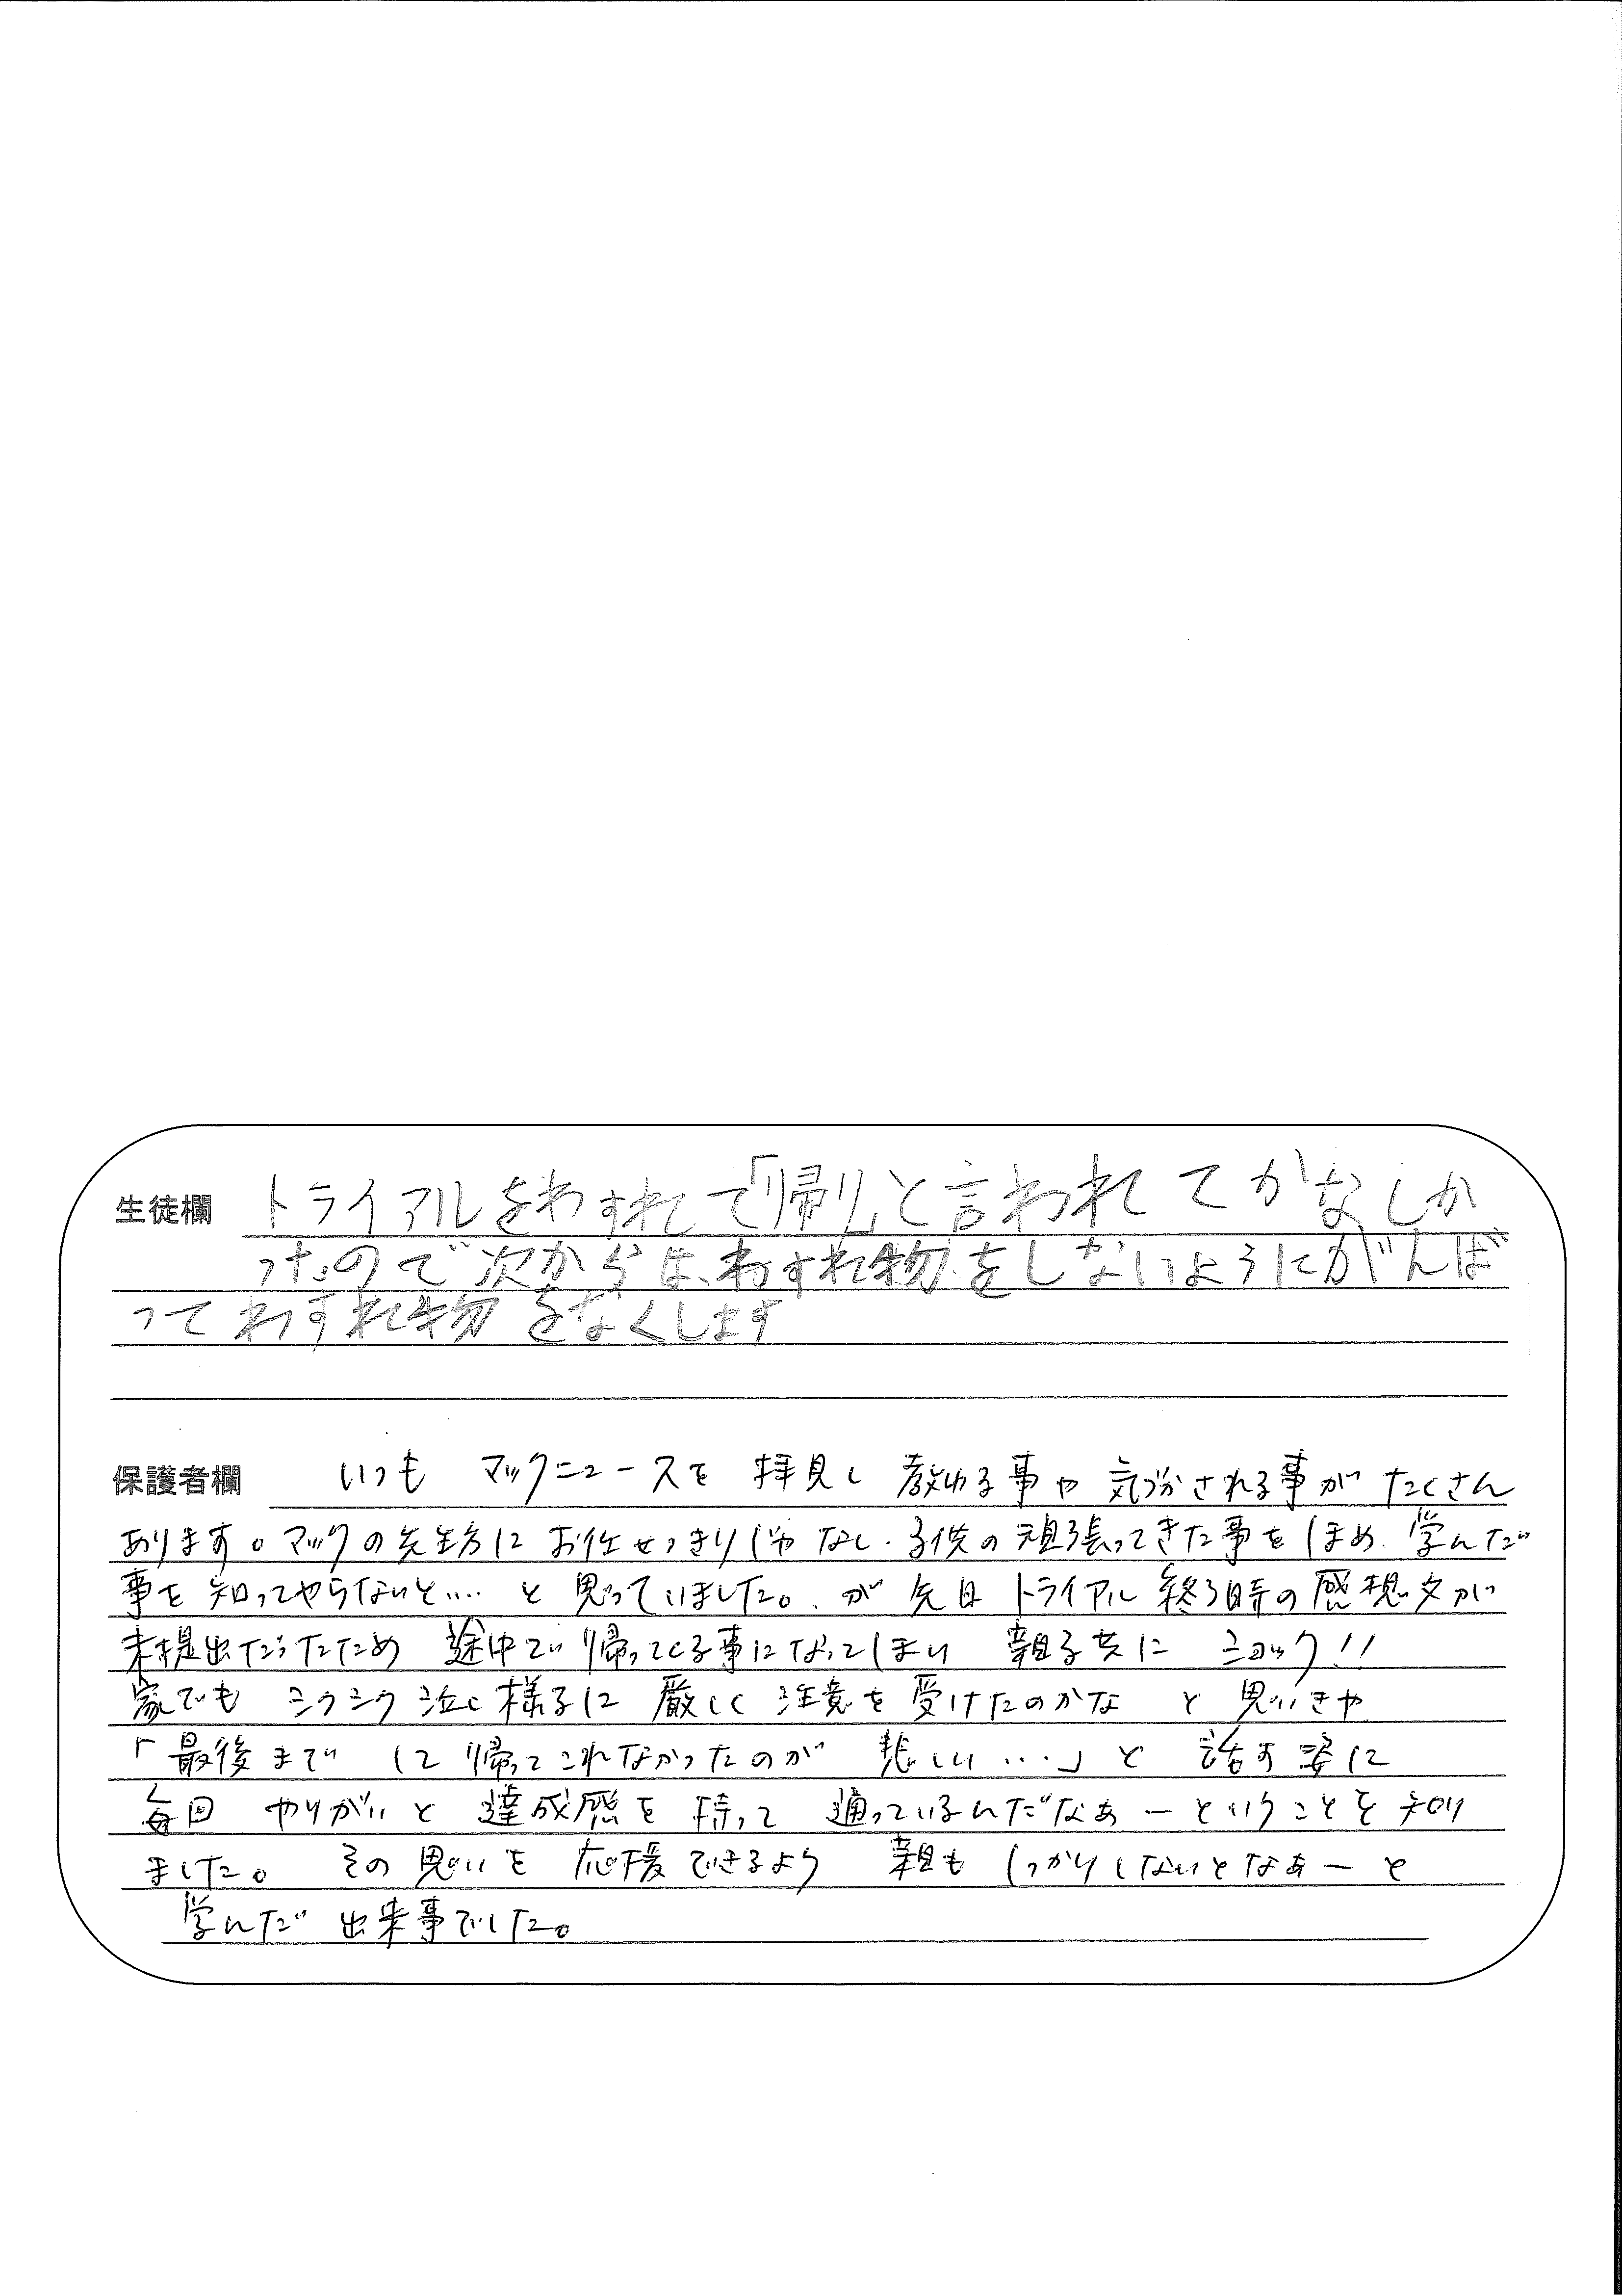 生徒欄 トライアルをわすれて「帰り」と言われてかなしか
ったので次からは、わすれ物をしないようにがんば
ってわすれ物をなくします
保護者欄 いつも マックニュースを 拝見し 教わる事や 気づかされる事が たくさん
あります。マックの先生方に お任せっきりじゃなく、子供の頑張ってきた事を ほめ、学んだ
事を 知ってやらないと…. と 思っていました。が 先日 トライアル 終了時の感想文が
未提出だったため 途中で 帰ってくる事になってしまい 親子共に ショック!!
家でも シクシク 泣く様子に 厳しく 注意を 受けたのかな と 思いきや
「最後まで して帰ってこれなかったのが 悲しい…」と 話す姿に
毎回 やりがいと 達成感を 持って 通っているんだなぁーということを 知り
ました。 その思いを 応援できるよう 親も しっかりしないとなぁーと
学んだ 出来事でした。